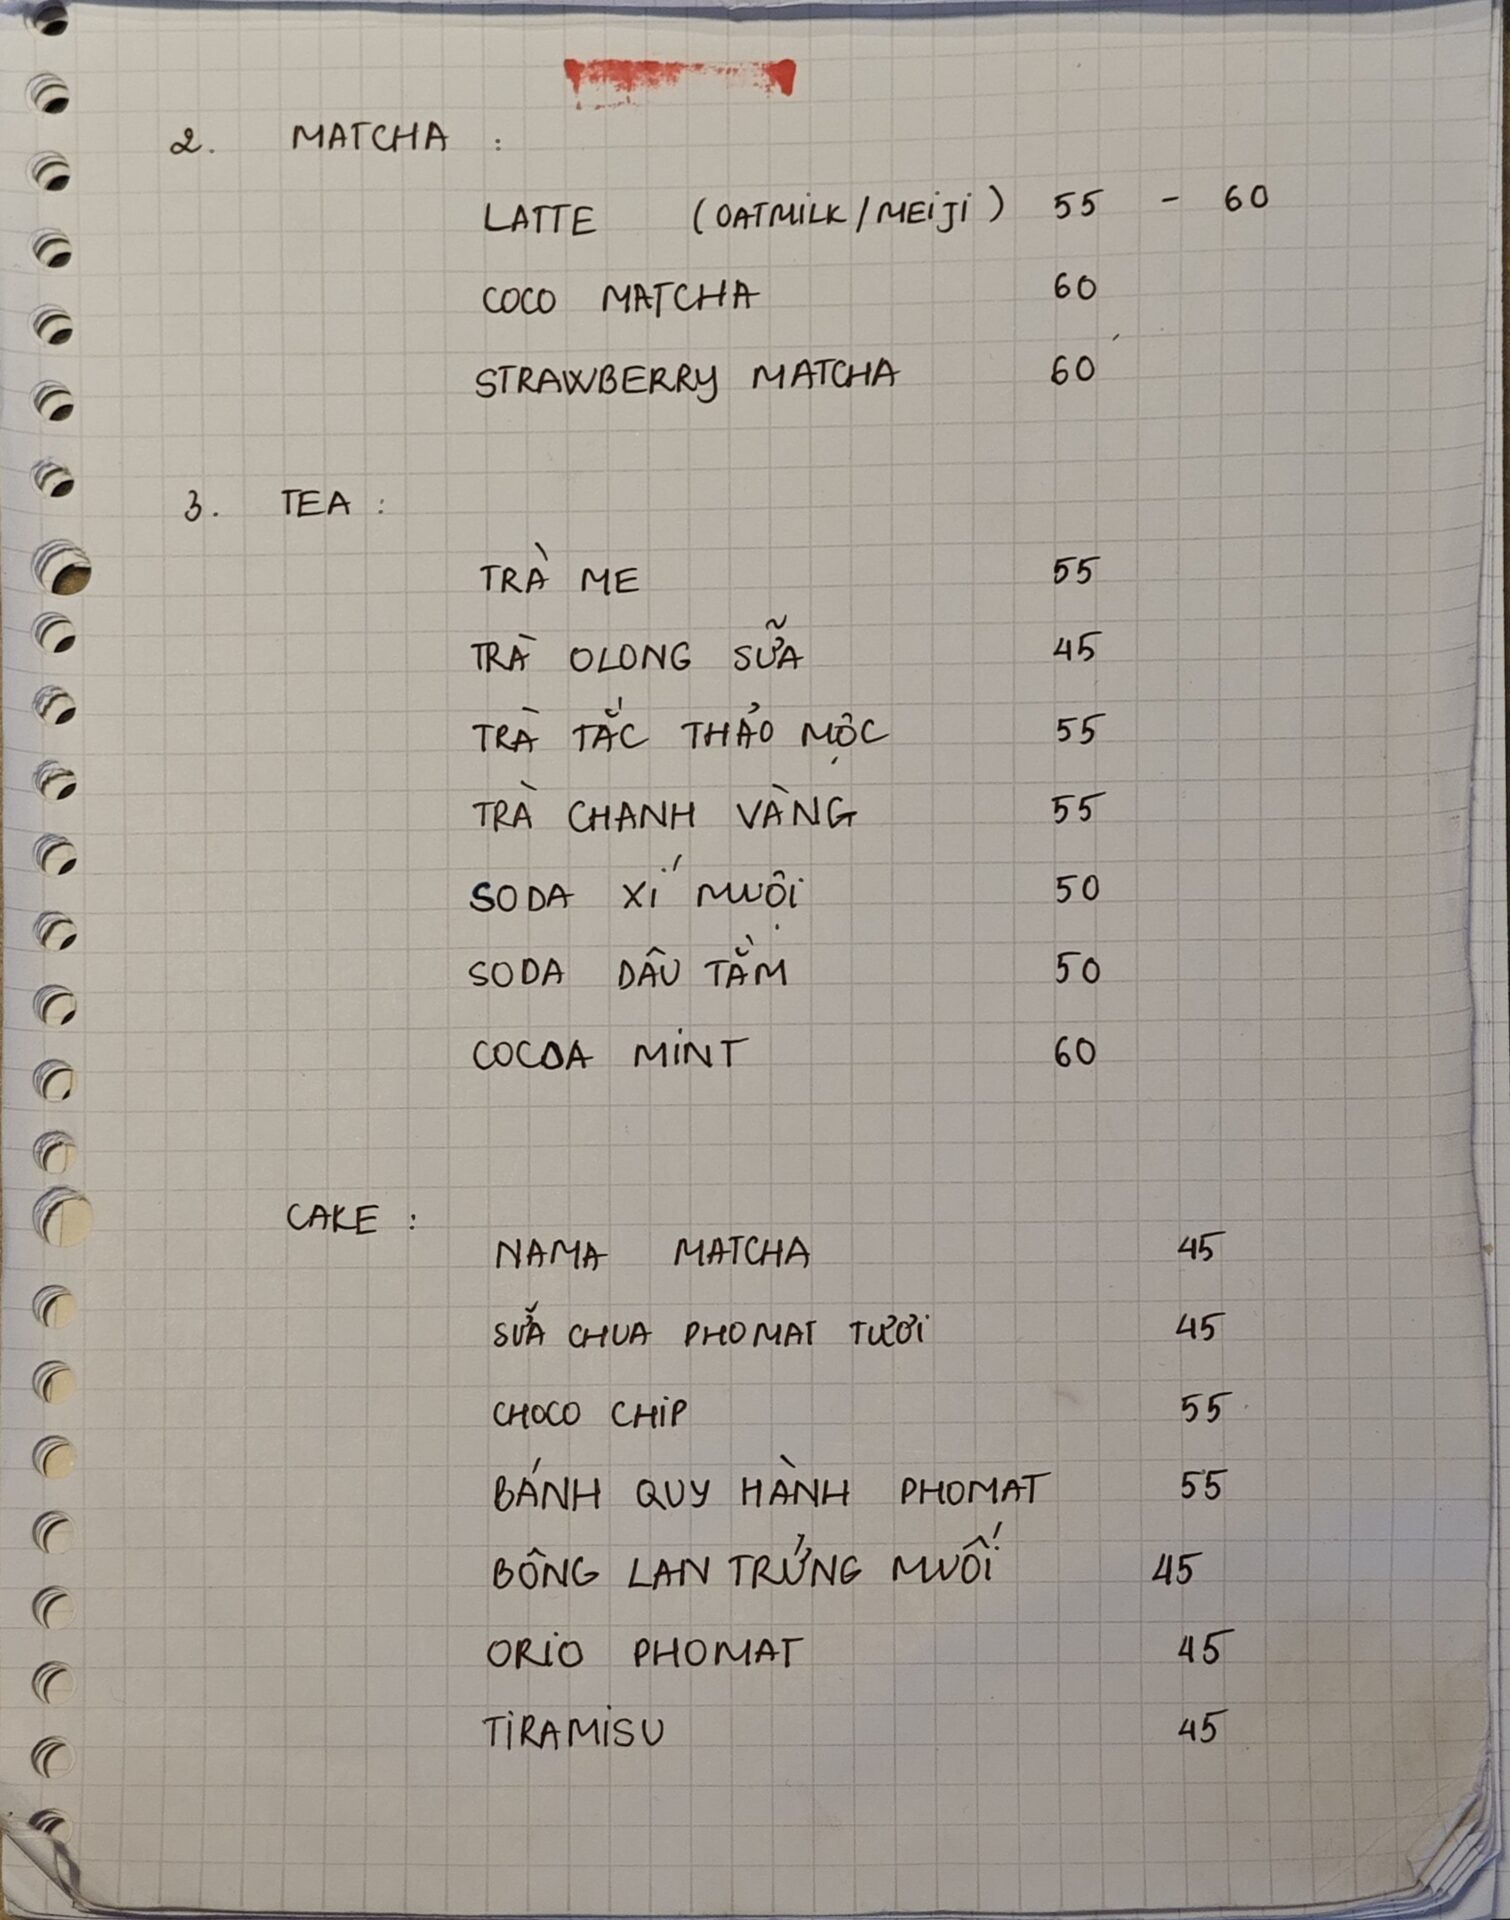 2. MATCHA :
LATTE (OATMILK/MEIJI) 55 - 60
COCO MATCHA 60
STRAWBERRY MATCHA 60
3. TEA :
TRÀ ME 55
TRÀ OLONG SỮA 45
TRÀ TẮC THẢO MỘC 55
TRÀ CHANH VÀNG 55
SODA XÍ MUỘI 50
SODA DÂU TẰM 50
COCOA MINT 60
CAKE :
NAMA MATCHA 45
SỮA CHUA PHOMAT TƯƠI 45
CHOCO CHIP 55
BÁNH QUY HÀNH PHOMAT 55
BÔNG LAN TRỨNG MUỐI 45
ORIO PHOMAT 45
TIRAMISU 45